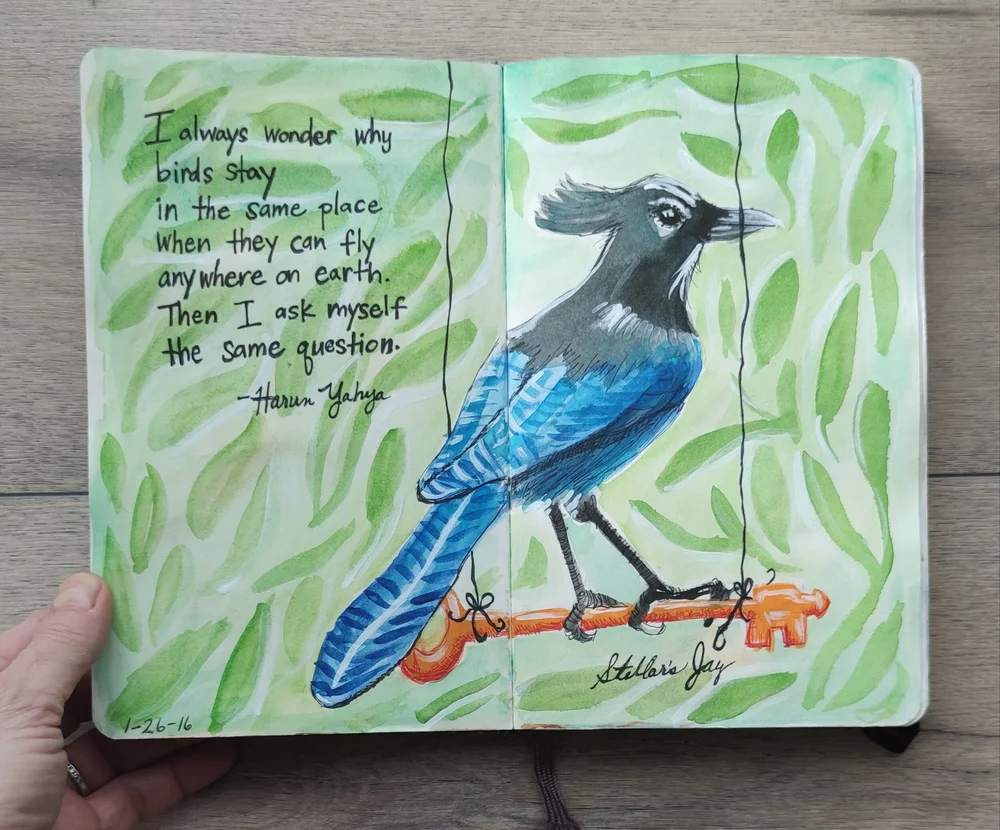 I always wonder why
birds stay
in the same place
when they can fly
anywhere on earth.
Then I ask myself
the same question.
-Harun Yahya
Stellar's Jay
1-26-16